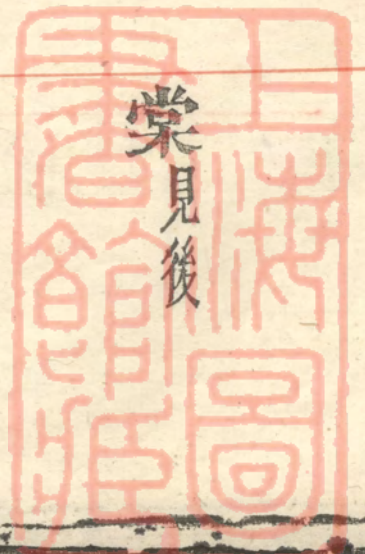 棠見後
上海圖
書館藏